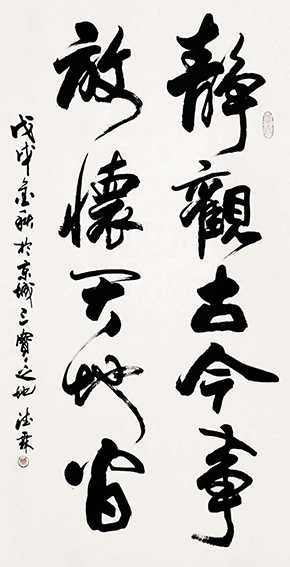 靜觀古今事
放懷天地間
戊戌金秋於京城三寶之地德霖